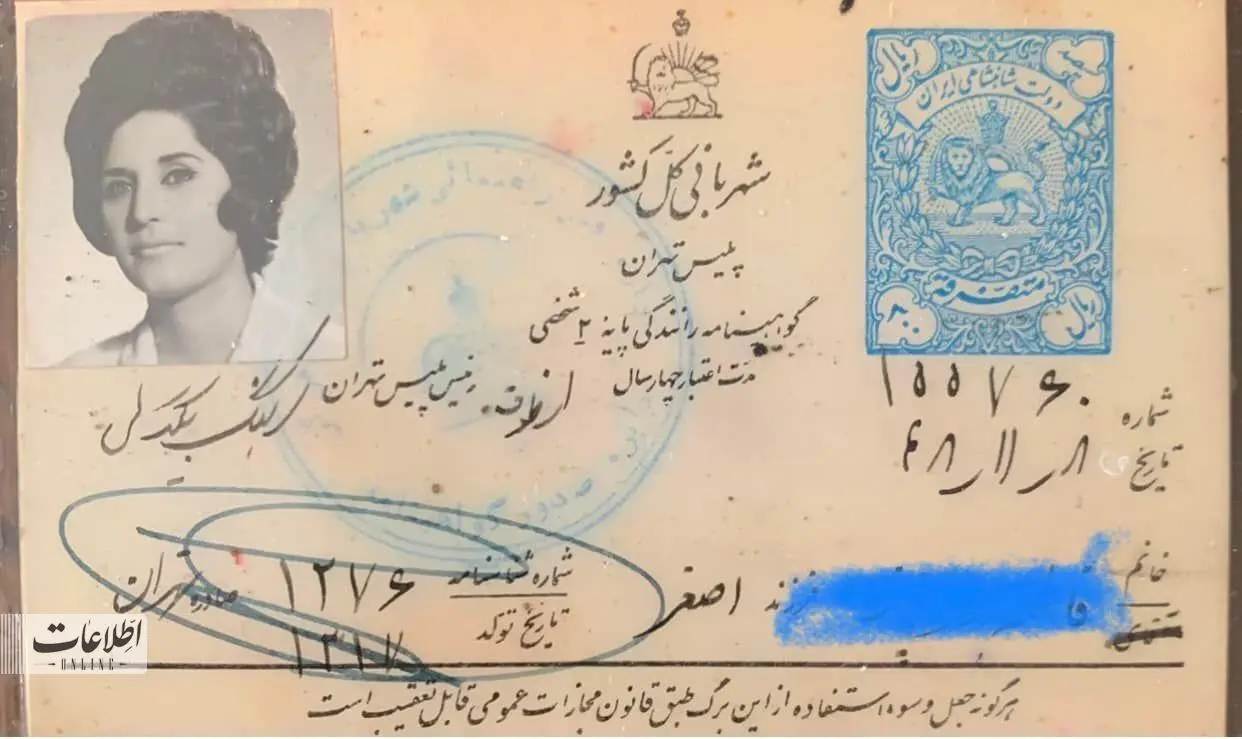 ریال
یکصد
دولت شاهنشاهی ایران
متفرقه
۸۰۰
ریال
شهربانی کل کشور
پلیس تهران
گواهینامه رانندگی پایه ۲ شخصی
مدت اعتبار چهار سال
از طرف رئیس پلیس تهران
شماره ۱۵۵۷۶۰
تاریخ ۴۸ر۱۱ر۸
خانم
فرزند اصغر
شماره شناسنامه ۱۲۷۶ صادره تهران
تاریخ تولد ۱۳۱۷
هرگونه جعل و سوء استفاده از این برگ طبق قانون مجازات عمومی قابل تعقیب است
اطلاعات
ONLINE